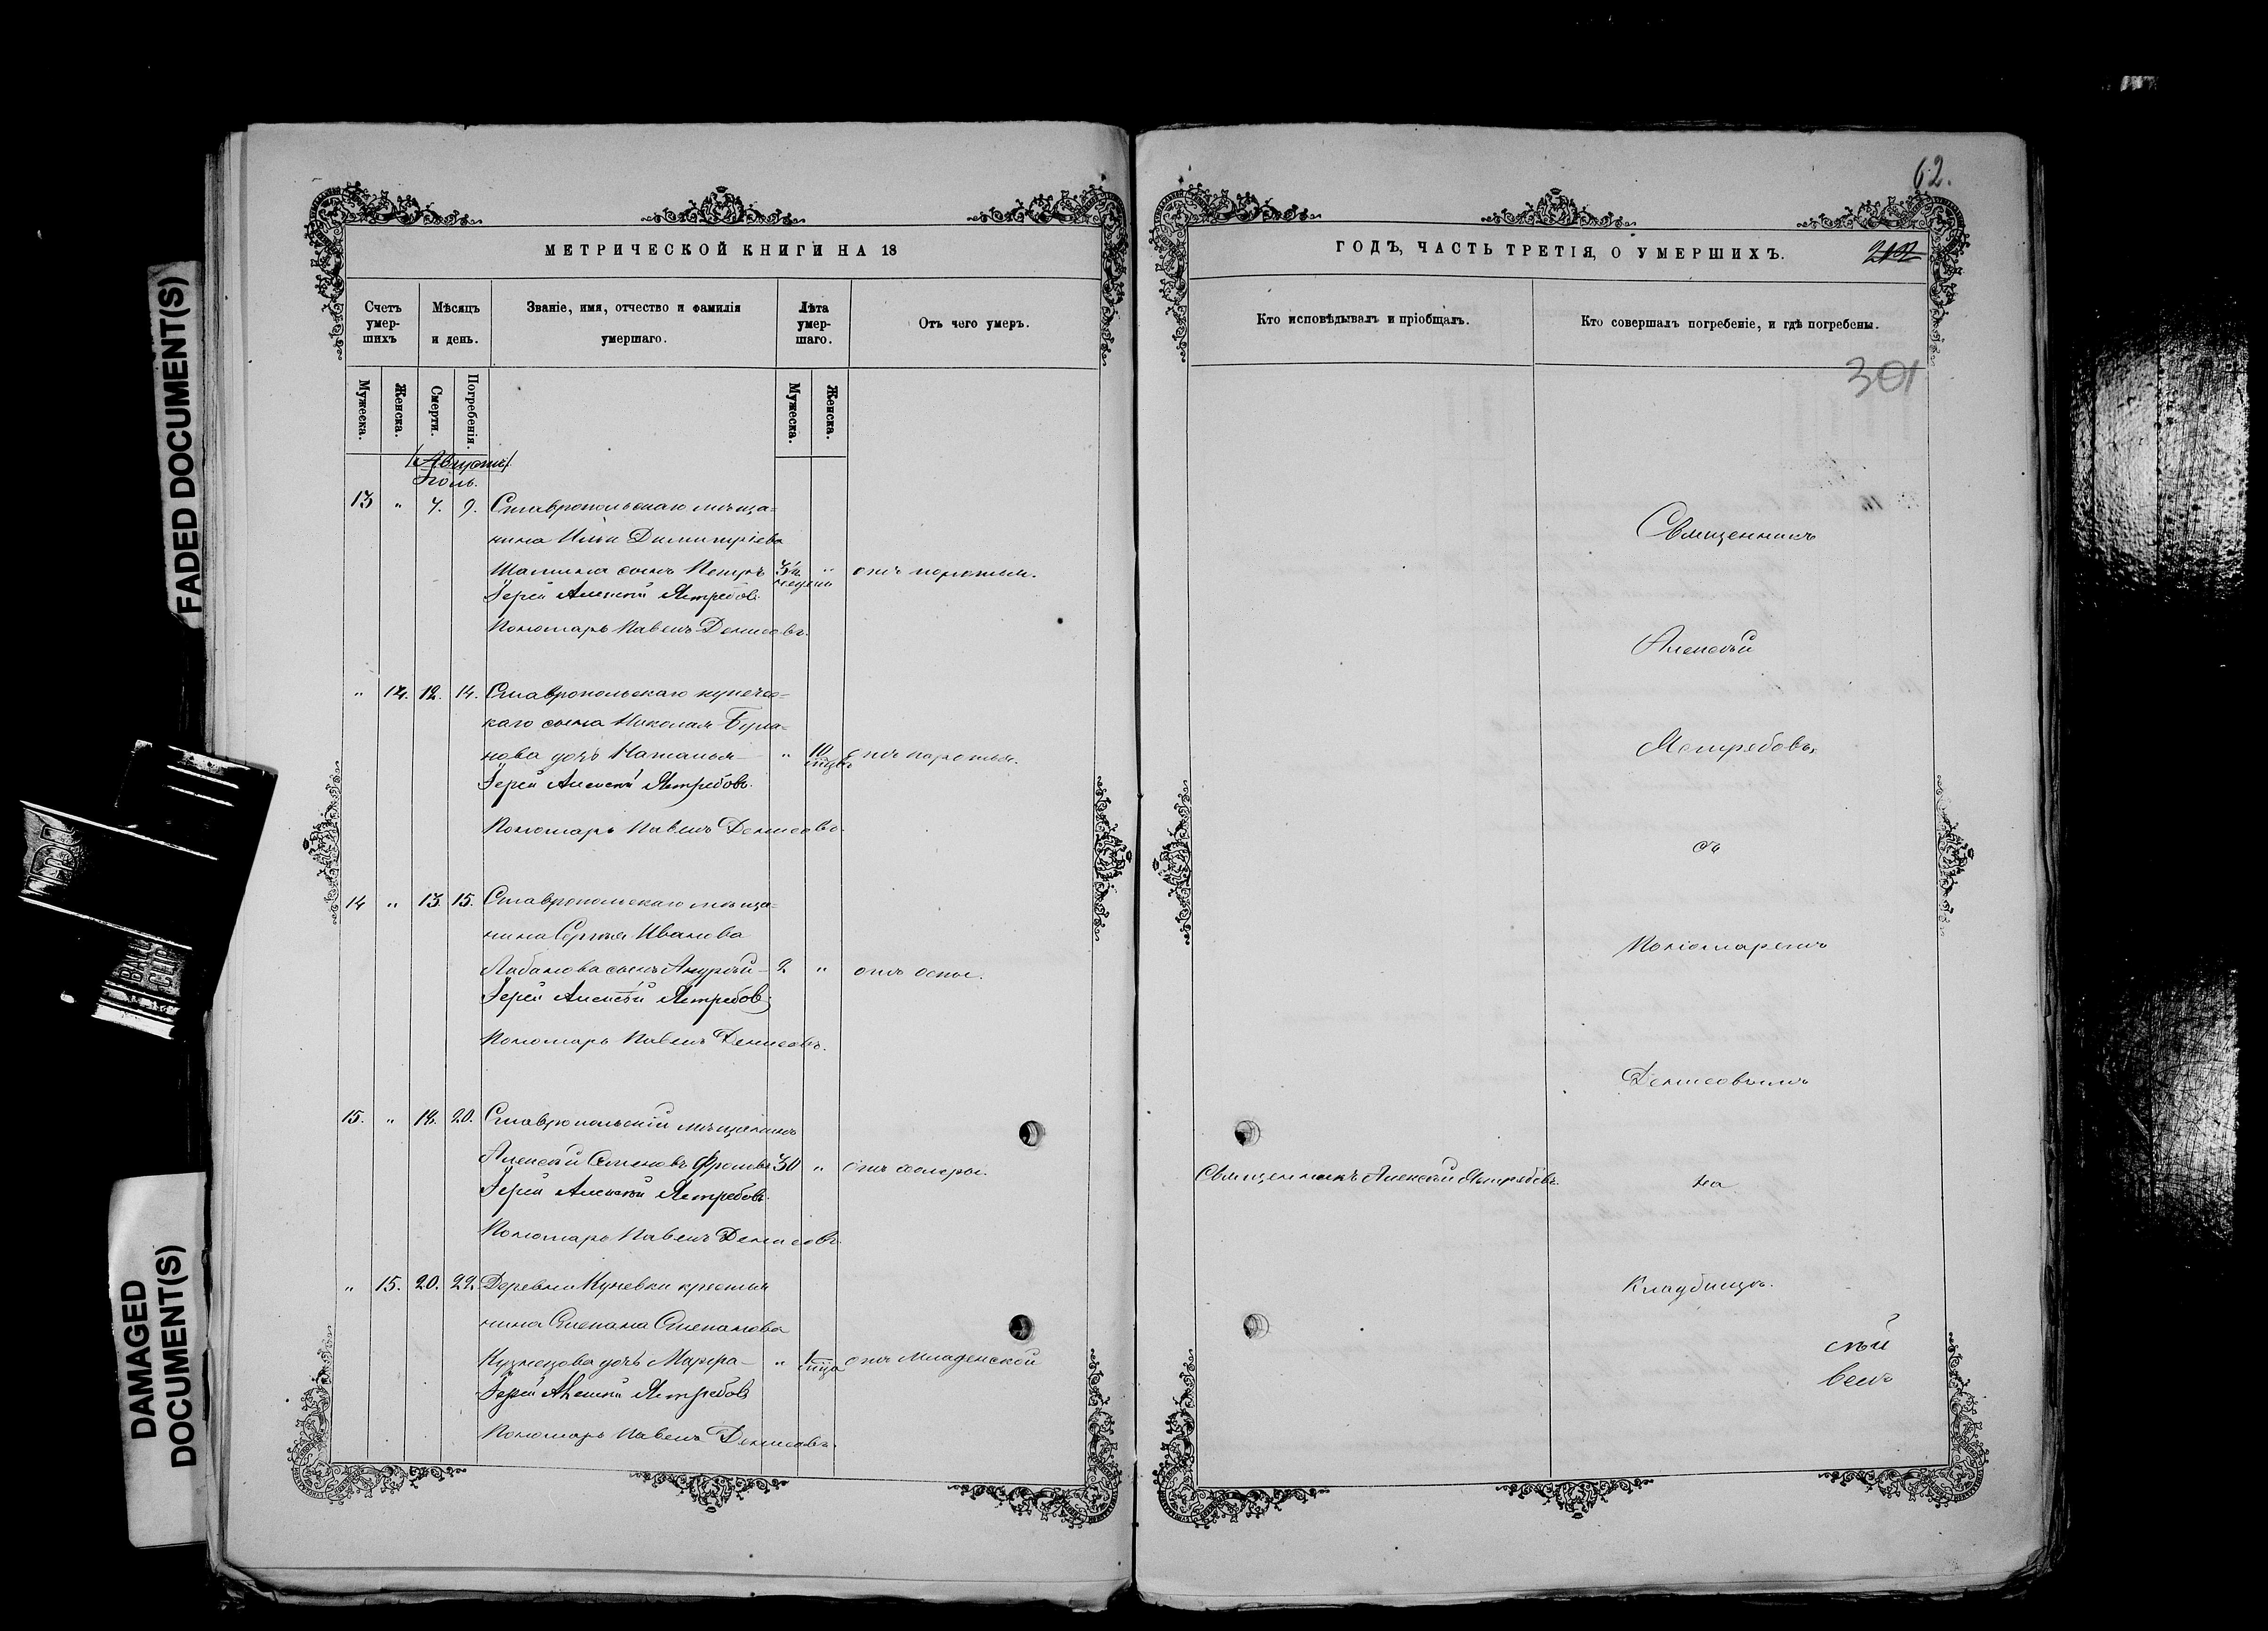 FADED DOCUMENT(S)
DAMAGED DOCUMENT(S)
МЕТРИЧЕСКОЙ КНИГИ НА 18
Счетъ умер-шихъ
Мѣсяцъ и день.
Званіе, имя, отчество и фамилія умершаго.
Лѣта умер-шаго.
Отъ чего умеръ.
Мужеска.
Женска.
Смерти.
Погребенія.
Мужеска.
Женска.
Іюль.
13 " 7. 9. Ставропольскаго мѣща-
нина Ильи Димитріева
Шашина сынъ Петръ 3½ недѣли " отъ поноса.
Іерей Алексѣй Ястребовъ.
Пономарь Павелъ Денисовъ.
" 14. 12. 14. Ставропольскаго купечес-
каго сына Николая Бура-
нова дочь Наталья — " 10 мцвъ отъ поноса.
Іерей Алексѣй Ястребовъ.
Пономарь Павелъ Денисовъ.
14 " 13. 15. Ставропольскаго мѣща-
нина Сергѣя Иванова
Лабанова сынъ Андрей — 2 " отъ оспы.
Іерей Алексѣй Ястребовъ
Пономарь Павелъ Денисовъ.
15. " 18. 20. Ставропольскій мѣщанинъ
Алексѣй Семеновъ Фроловъ 30 " отъ холеры.
Іерей Алексѣй Ястребовъ.
Пономарь Павелъ Денисовъ.
" 15. 20. 22. Деревни Кунеевки крестья
нина Степана Степанова
Кузнецова дочь Марѳа — " 1 мца отъ младенской
Іерей Алексѣй Ястребовъ
Пономарь Павелъ Денисовъ.
62.
ГОДЪ, ЧАСТЬ ТРЕТІЯ, О УМЕРШИХЪ.
Кто исповѣдывалъ и пріобщалъ.
Кто совершалъ погребеніе, и гдѣ погребены.
301
Священникъ
Алексѣй
Ястребовъ
съ
Пономаремъ
Денисовымъ
Священникъ Алексѣй Ястребовъ.
на
Кладбищѣ.